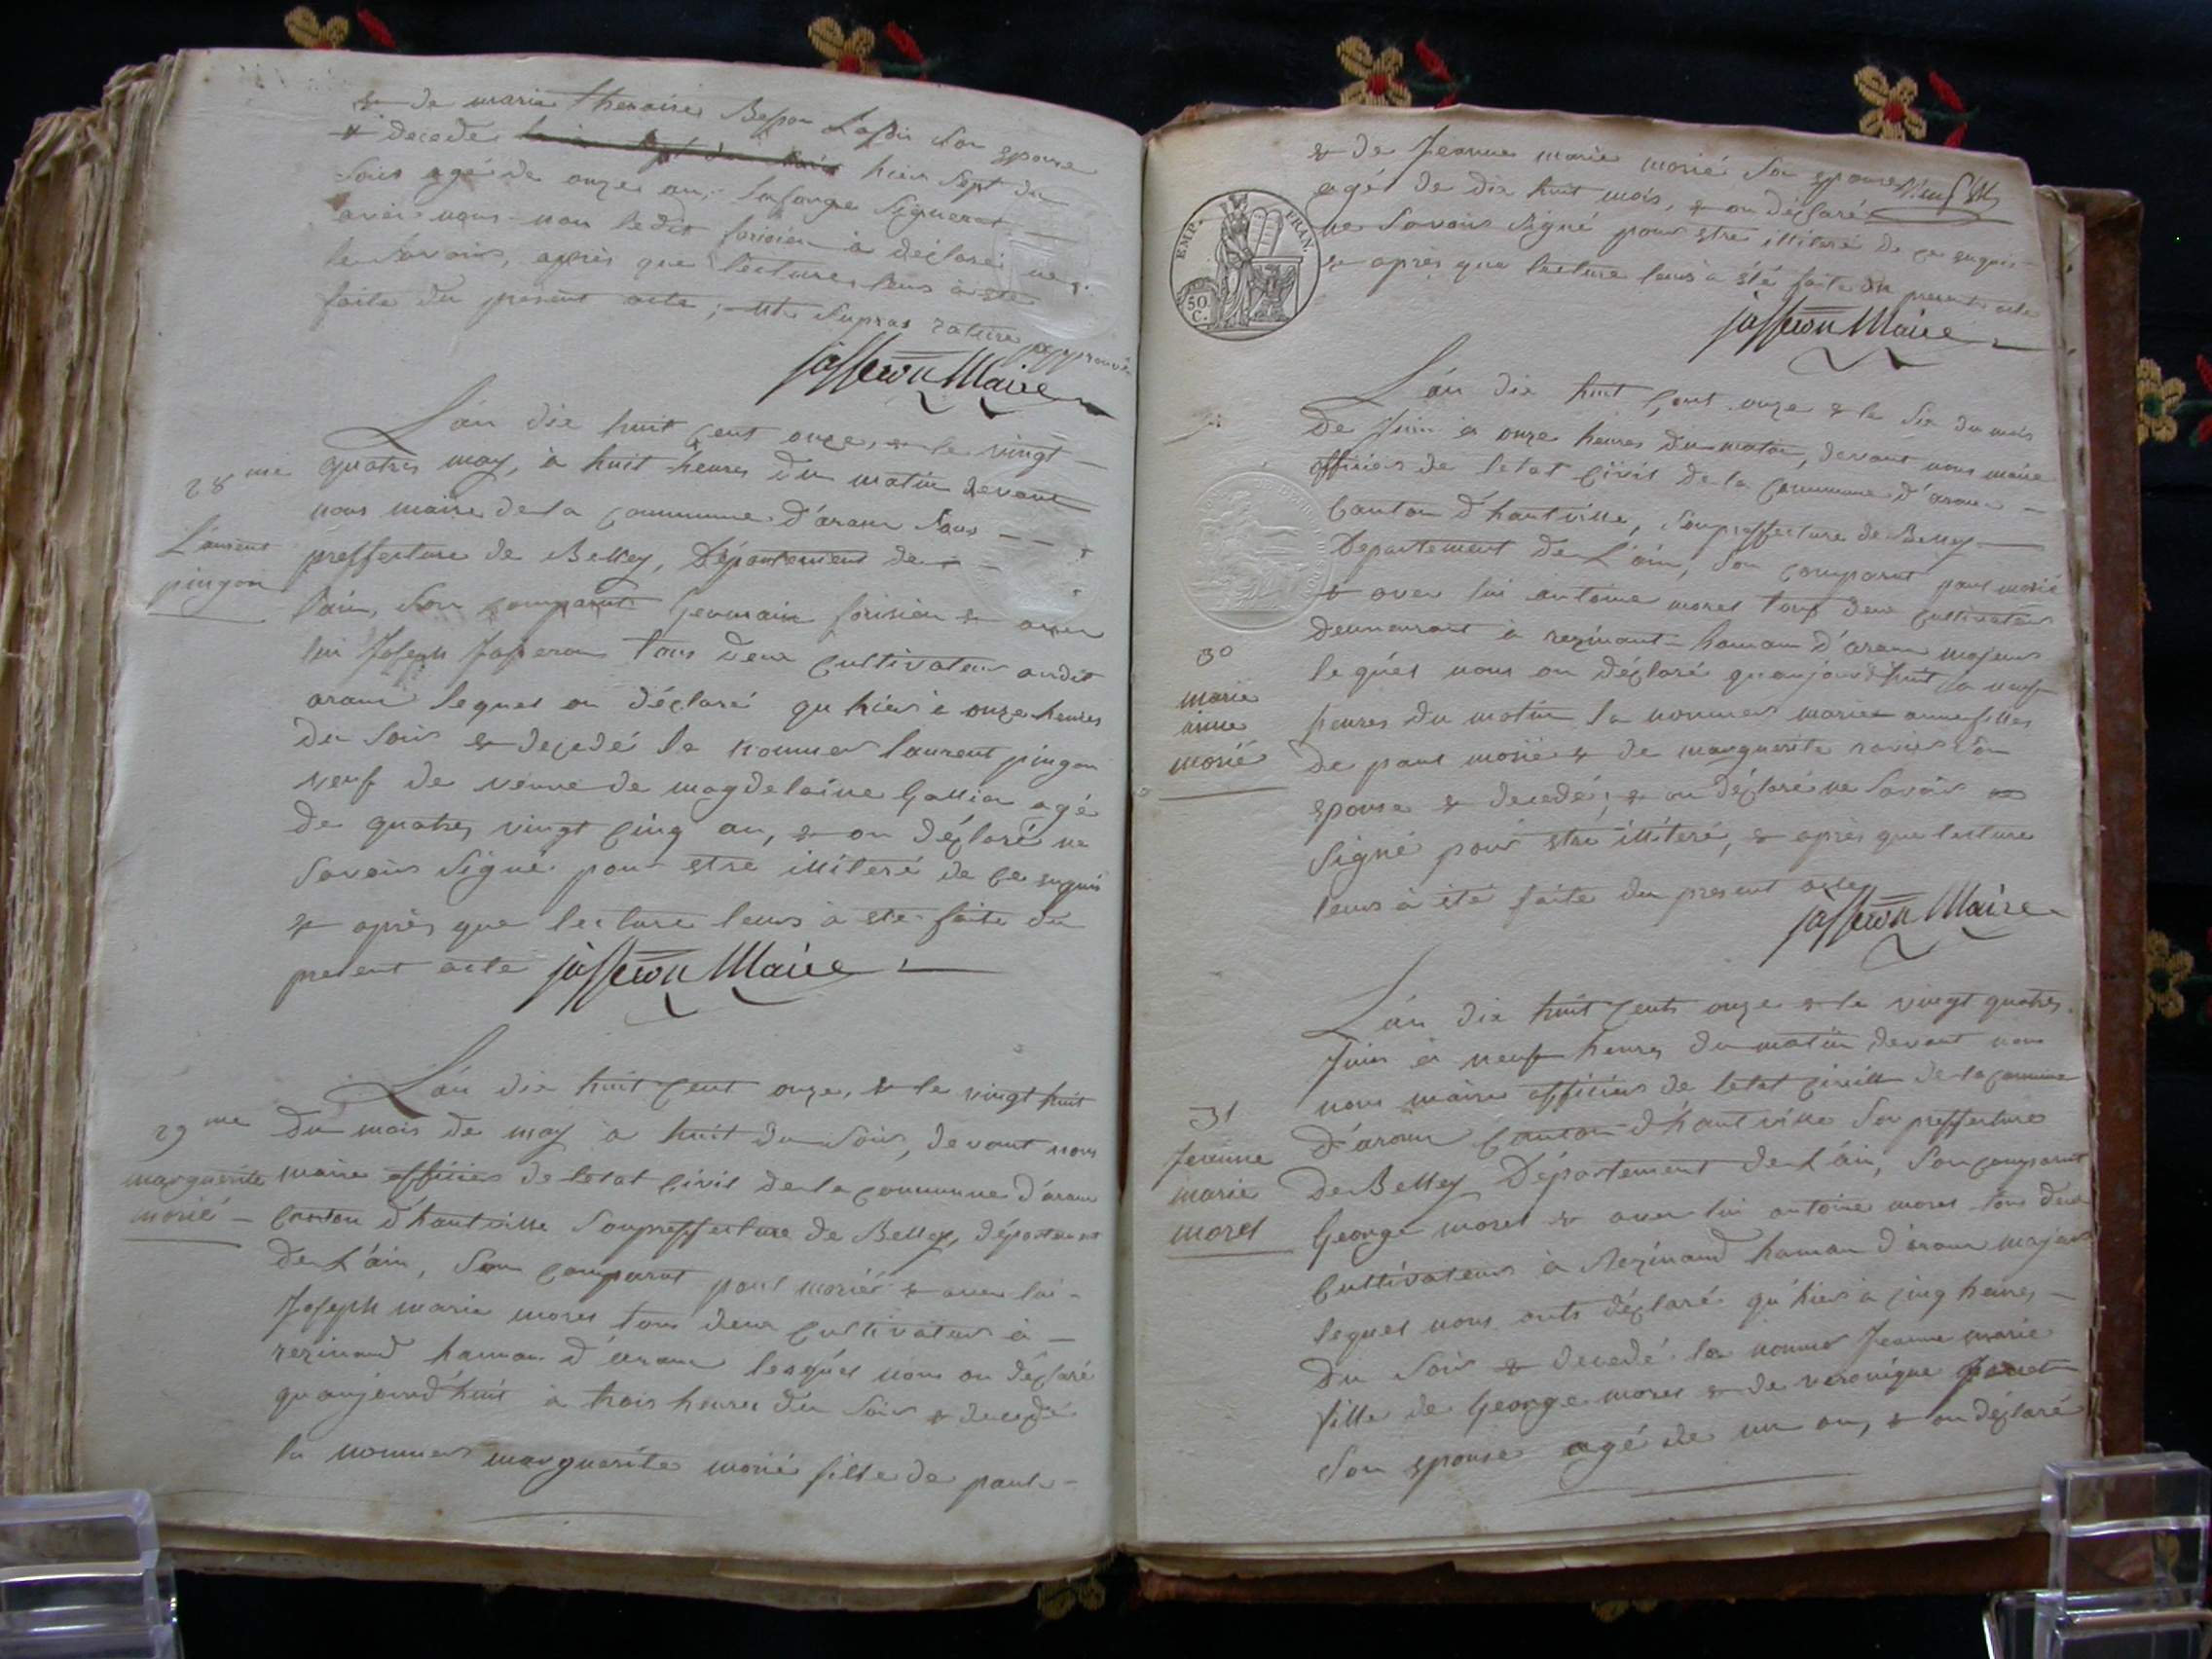 & de maria theraise Besson Lapin son epouse
& decede hier sept du
soir agé de onze an, lafarge signeret
avec nous non ledit forisier à déclaré ne
le savoir, après que lecture leurs à ete
faite du present acte; ratture approuvé
jasseron Maire
L'an dix huit cent onze, & le vingt
28me
quatres may, à huit heures du matin devant
nous maire de la commune d'aranc sous
Laurent
pingon
preffecture de Belley, Département de
l'ain, son comparut Germain forisier & avec
lui Joseph Jasseron tous deux cultivateur audit
aranc lequel on déclaré qu hier à onze heures
du soir & decedé le nommer laurent pingon
veuf de magdelaine Gallia agé
de quatres vingt cinq an, & on déclaré ne
savoir signé pour estre illiteré de ce enquis
& après que lecture leurs à ete faite du
present acte jasseron Maire
L'an dix huit cent onze, & le vingt huit
29me
du mois de may à huit du soir, devant nous
marguerite
morié
maire officier de letat civil de la commune d'aranc
Canton d'hautville soupreffecture de Belley, département
de L'ain, son comparut paul morié & avec lui
Joseph marie morel tous deux cultivateur à
rezinand hamau d'aranc lesquel nous on déclaré
quaujourd'huit à trois heures du soir & decedé
la nommer marguerite morié fille de paul
& de Jeanne marie morié son epouse
agé de dix huit mois, & on déclaré
ne savoir signé pour estre illiteré de ce enquis
& après que lecture leurs à été faite du present acte
EMP. FRAN.
50 C.
jasseron Maire
L'an dix huit cent onze & le six du mois
de Juin à onze heures du matin, devant nous maire
officier de letat civil de la commune d'aranc
Canton d'hautville, soupreffecture de Belley
Departement de L'ain, son comparut paul morié
& avec lui antoine morel tous deux cultivateur
demeurant à rezinant hamau d'aranc majeur
30
marie
anne
morié
lequel nous on déclaré quaujourdhuit à neuf
heures du matin la nommer marie anne fille
de paul morié & de marguerite ravier son
epouse & decedé; & on déclaré ne savoir
signé pour estre illiteré, & après que lecture
leurs à été faite du present acte
jasseron Maire
L'an dix huit cents onze & le vingt quatres
Juin à neuf heures du matin devant nous
nous maire officier de letat civill de la commune
31
Jeanne
marie
morel
d'aranc Canton d'hautville sou preffecture
de Belley Département de L'ain, son comparut
George morel & avec lui antoine morel tous deux
Cultivateur à Rezinand hamau d'aranc majeur
lequel nous onts déclaré qu'hier à cinq heures
du soir & decedé la nommé Jeanne marie
fille de George morel & de veronique
son epouse agé de un an, & on déclaré